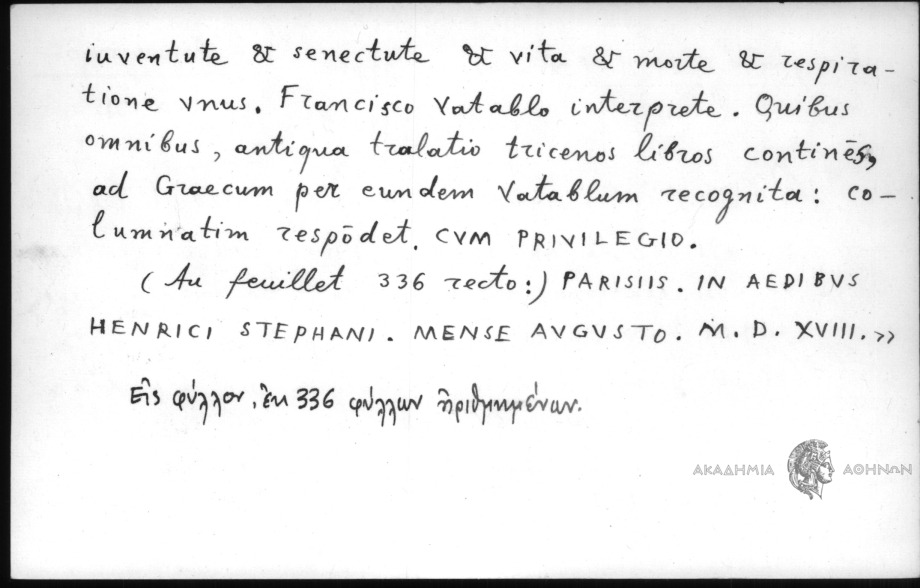 iuventute & senectute & vita & morte & respira-
tione vnus. Francisco Vatablo interprete. Quibus
omnibus, antiqua tralatio tricenos libros continēs,
ad Graecum per eundem Vatablum recognita: co-
lumnatim respōdet. CVM PRIVILEGIO.
(Au feuillet 336 recto:) PARISIIS. IN AEDIBVS
HENRICI STEPHANI. MENSE AVGVSTO. M. D. XVIII. »
Εἰς φύλλον, ἐκ 336 φύλλων ἠριθμημένων.
ΑΚΑΔΗΜΙΑ ΑΘΗΝΩΝ